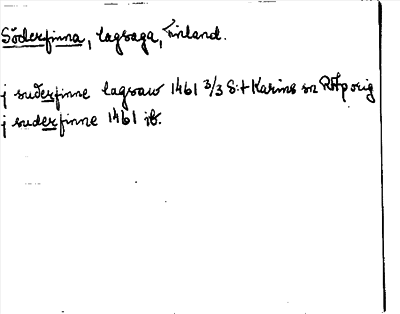 Söderfinna, lagsaga, Finland.
j suderfinne lagsaw 1461 3/3 S:t Karins sn RAp orig
j suderfinne 1461 ib.